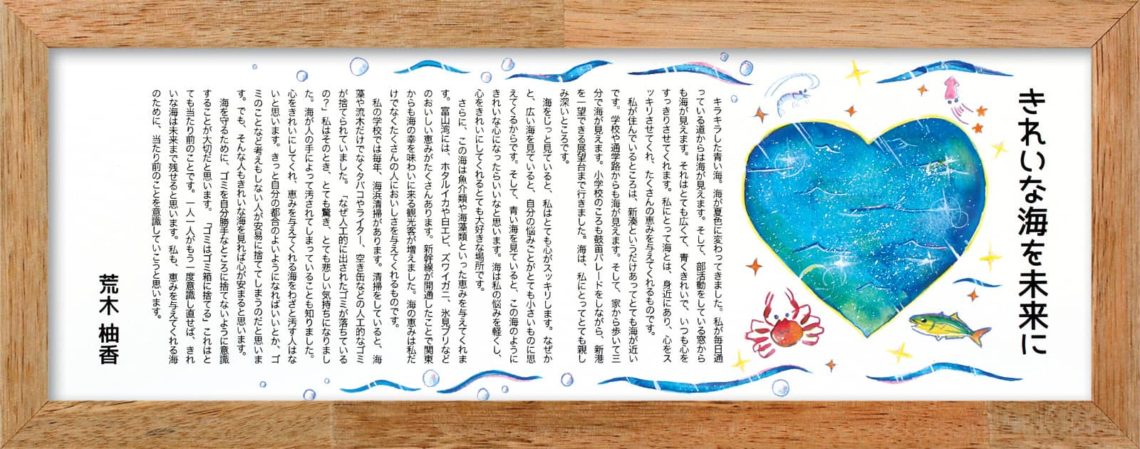 きれいな海を未来に
キラキラした青い海。海が夏色に変わってきました。私が毎日通
っている道からは海が見えます。そして、部活動をしている窓から
も海が見えます。それはとても広くて、青くきれいで、いつも心を
すっきりさせてくれます。私にとって海とは、身近にあり、心をス
ッキリさせてくれ、たくさんの恵みを与えてくれるものです。
私が住んでいるところは、新湊というだけあってとても海が近い
です。学校や通学路からも海が見えます。そして、家から歩いて三
分で海が見えます。小学校のころも鼓笛パレードをしながら、新港
を一望できる展望台まで行きました。海は、私にとってとても親し
み深いところです。
海をじっと見ていると、私はとても心がスッキリします。なぜか
と、広い海を見ていると、自分の悩みごとがとても小さいものに思
えてくるからです。そして、青い海を見ていると、この海のように
きれいな心になったらいいなと思います。海は私の悩みを軽くし、
心をきれいにしてくれるとても大好きな場所です。
さらに、この海は魚介類や海藻類といった恵みを与えてくれま
す。富山湾には、ホタルイカや白エビ、ズワイガニ、氷見ブリなど
のおいしい恵みがたくさんあります。新幹線が開通したことで関東
からも海の幸を味わいに来る観光客が増えました。海の恵みは私だ
けでなくたくさんの人においしさを与えてくれるものです。
私の学校では毎年、海浜清掃があります。清掃をしていると、海
藻や流木だけでなくタバコやライター、空き缶などの人工的なゴミ
が捨てられていました。「なぜ人工的に出されたゴミが落ちている
の?」私はそのとき、とても驚き、とても悲しい気持ちになりまし
た。海が人の手によって汚されてしまっていることも知りました。
心をきれいにしてくれ、恵みを与えてくれる海をわざと汚す人はな
いと思います。きっと自分の都合のよいようになればいいとか、ゴ
ミのことなど考えもしない人が安易に捨ててしまうのだと思いま
す。でも、そんな人もきれいな海を見れば心が安まると思います。
海を守るために、ゴミを自分勝手なところに捨てないように意識
することが大切だと思います。「ゴミはゴミ箱に捨てる」これはと
ても当たり前のことです。一人一人がもう一度意識し直せば、きれ
いな海は未来まで残せると思います。私も、恵みを与えてくれる海
のために、当たり前のことを意識していこうと思います。
荒木 柚香